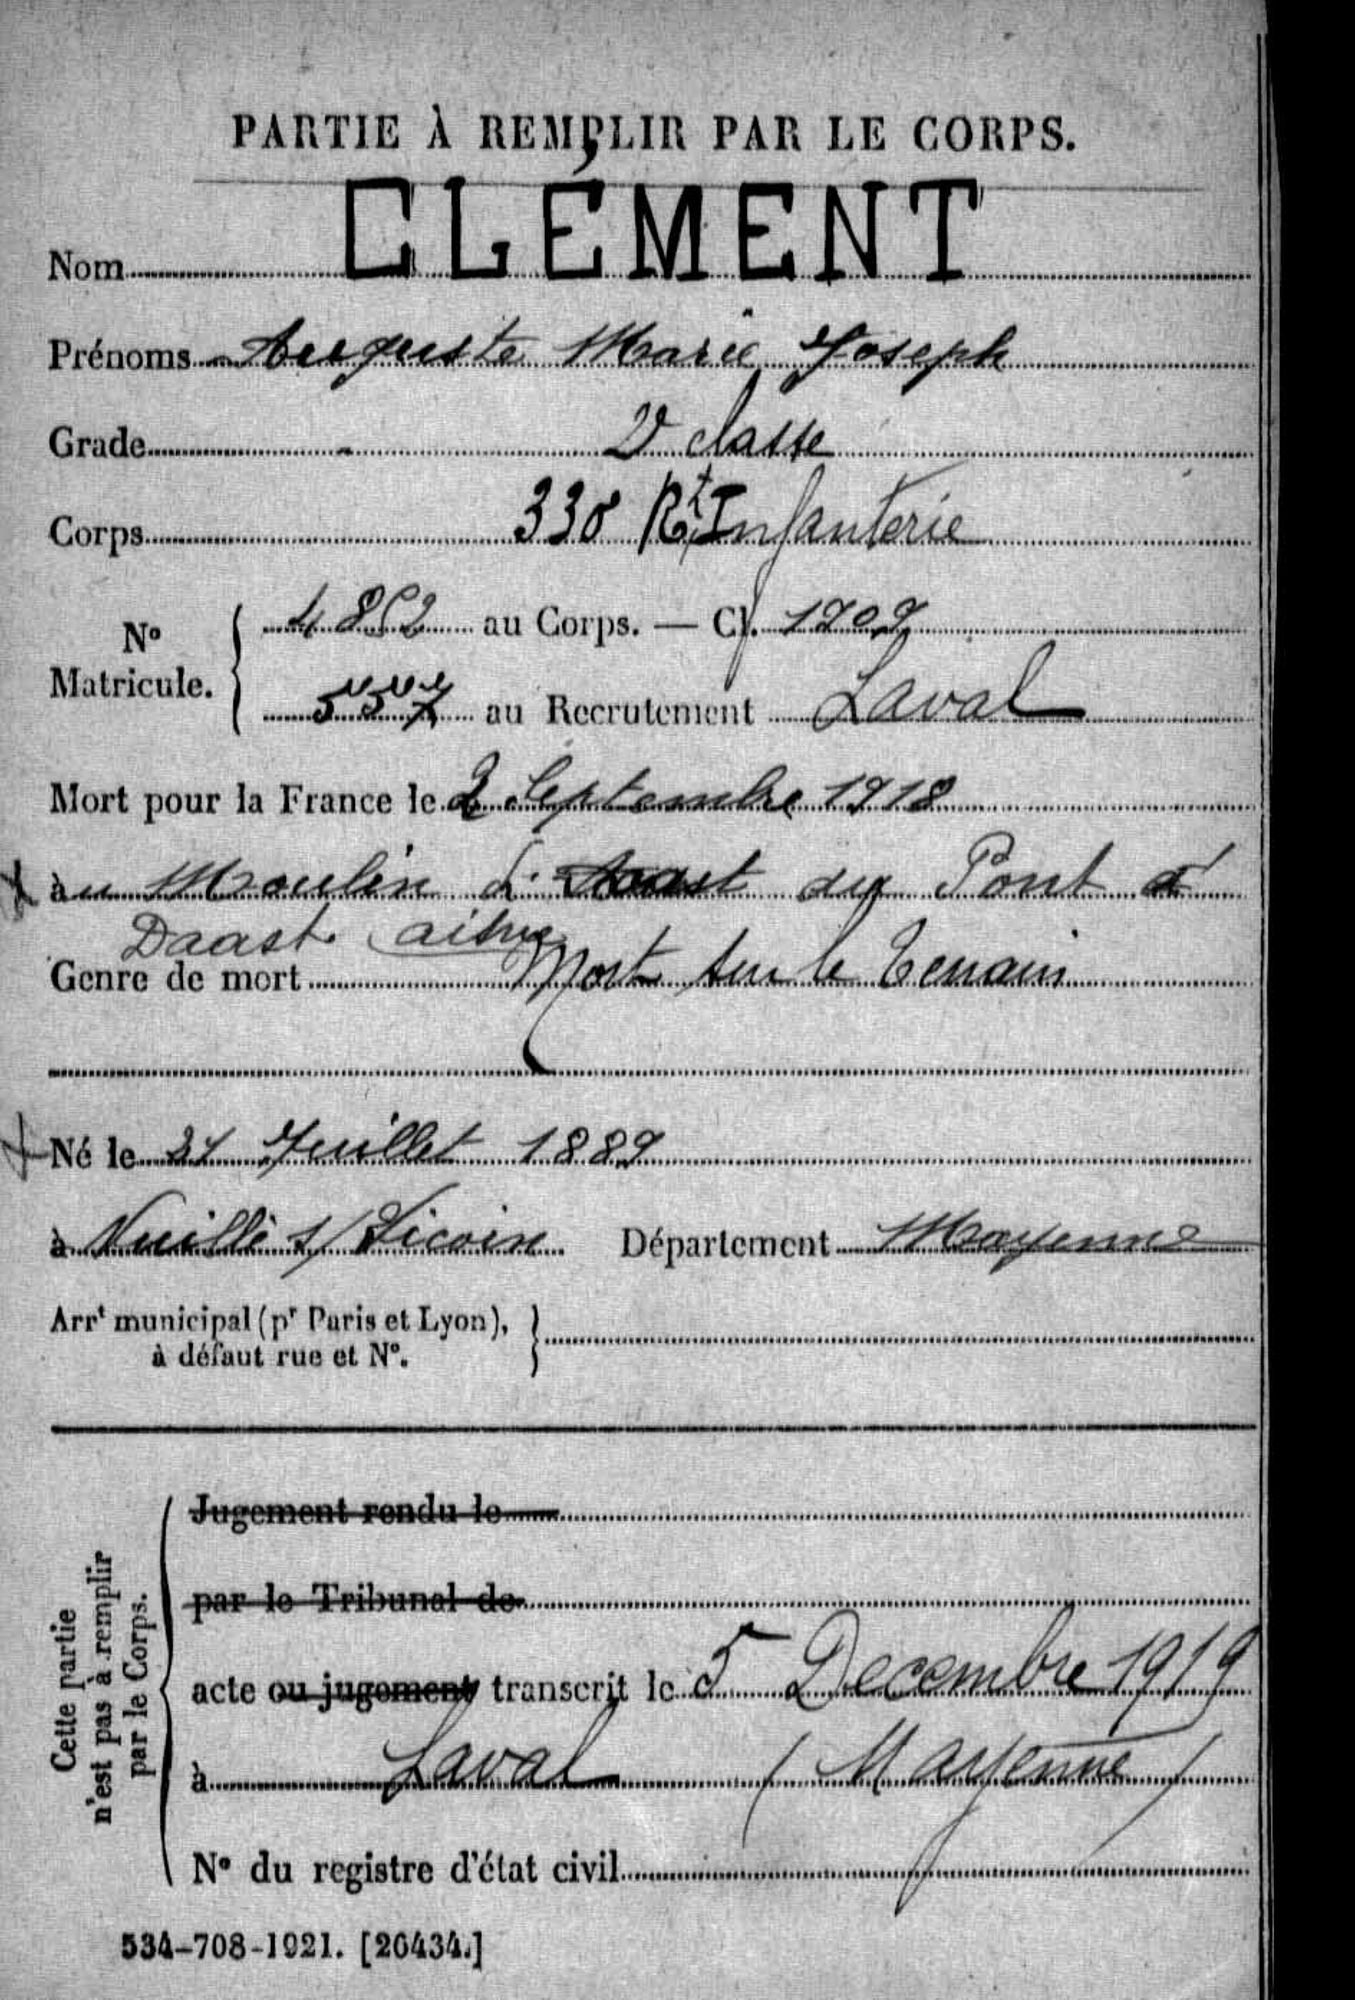 PARTIE À REMPLIR PAR LE CORPS.
Nom CLÉMENT
Prénoms Auguste Marie Joseph
Grade 2e classe
Corps 330 Rt Infanterie
No Maticule. 4852 au Corps. — Cl. 1909
557 au Recrutement Laval
Mort pour la France le 2 Septembre 1918
au Moulin du Pont d'
Daast aisne
Genre de mort Mort sur le Terrain
Né le 21 Juillet 1889
à Nuillé s/ Vicoin Département Mayenne
Arrt municipal (pr Paris et Lyon),
à défaut rue et No.
Cette partie
n'est pas à remplir
par le Corps.
Jugement rendu le
par le Tribunal de
acte ou jugement transcrit le 5 Decembre 1919
à Laval (Mayenne)
No du registre d'état civil
534-708-1921. [26434.]